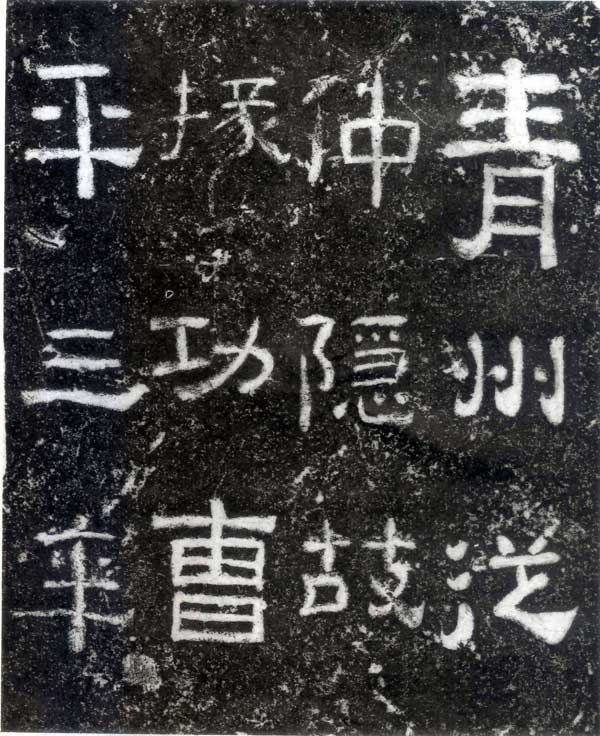 青州從
仲隐故
掾功曹
平三年